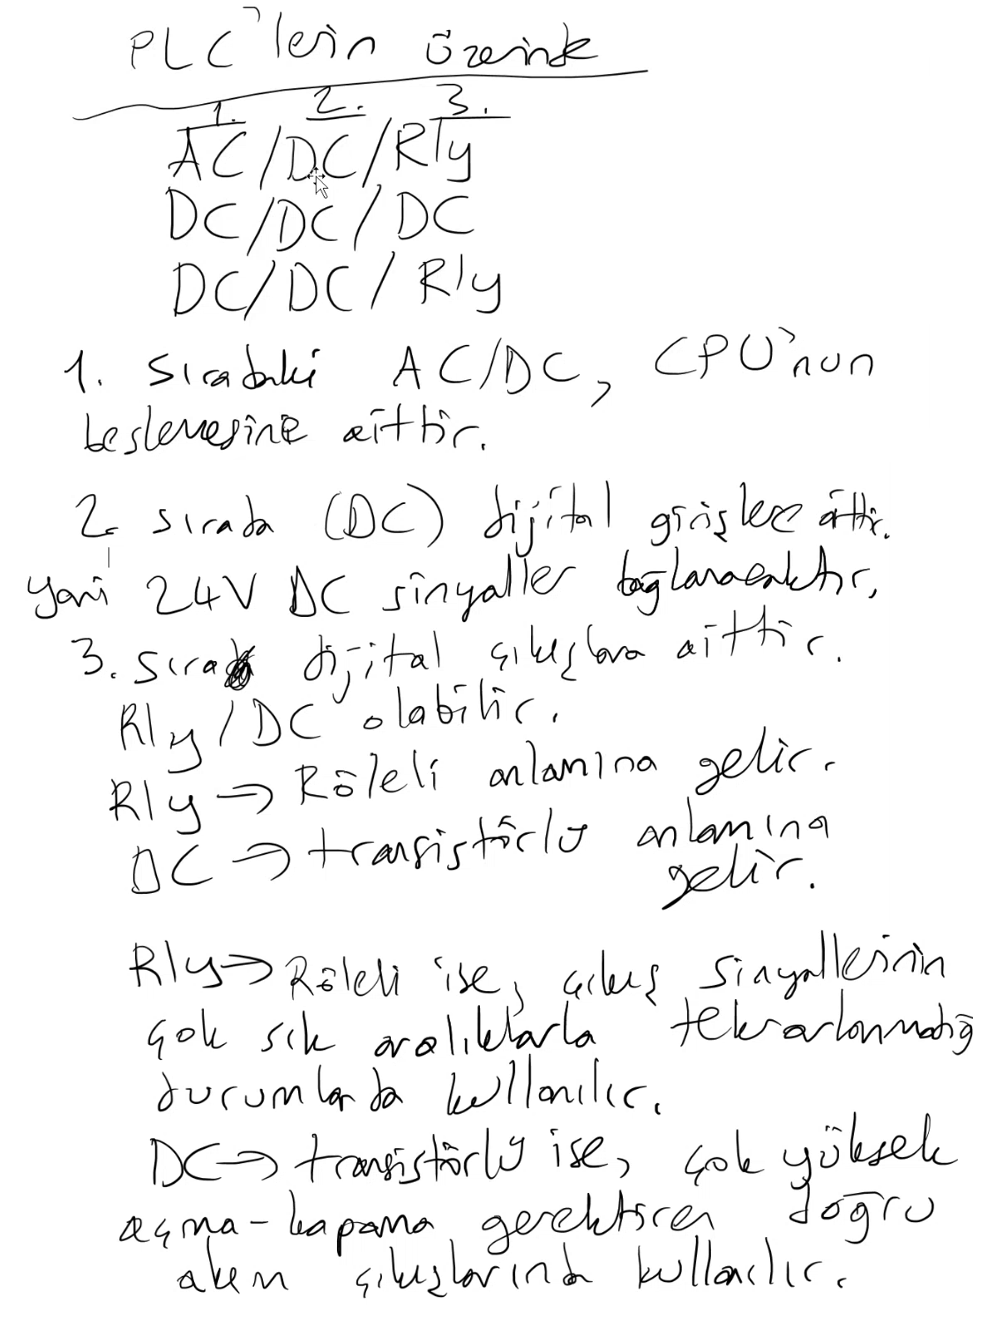 PLC'lerin üzerinde
1. 2. 3.
AC/DC/Rly
DC/DC/DC
DC/DC/Rly
1. Sıradaki AC/DC, CPU'nun
beslemesine aittir.
2. sırada (DC) dijital girişlere aittir.
yani 24V DC sinyaller bağlanacaktır.
3. Sıra dijital çıkışlara aittir.
Rly/DC olabilir.
Rly → Röleli anlamına gelir.
DC → transistörlü anlamına
gelir.
Rly → Röleli ise, çıkış sinyallerinin
çok sık aralıklarla tekrarlanmadığ
durumlarda kullanılır.
DC → transistörlü ise, çok yüksek
açma-kapama gerektiren doğru
akım çıkışlarında kullanılır.